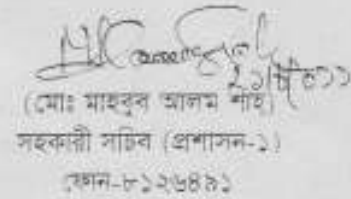 (মোঃ মাহবুব আলম শাহ)
সহকারী সচিব (প্রশাসন-১)
ফোন-৮১২৬৪৯১